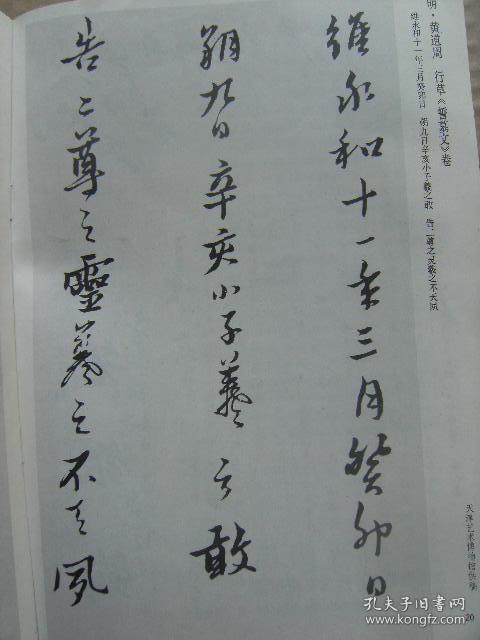 明·黄道周 行草《誓墓文》卷
维永和十一年三月癸卯日 朔九日辛亥小子羲之敢 告二尊之灵羲之不天夙
維永和十一年三月癸卯日
朔九日辛亥小子羲之敢
告二尊之靈羲之不天夙
天津艺术博物馆供稿
20
孔夫子旧书网
www.kongfz.com